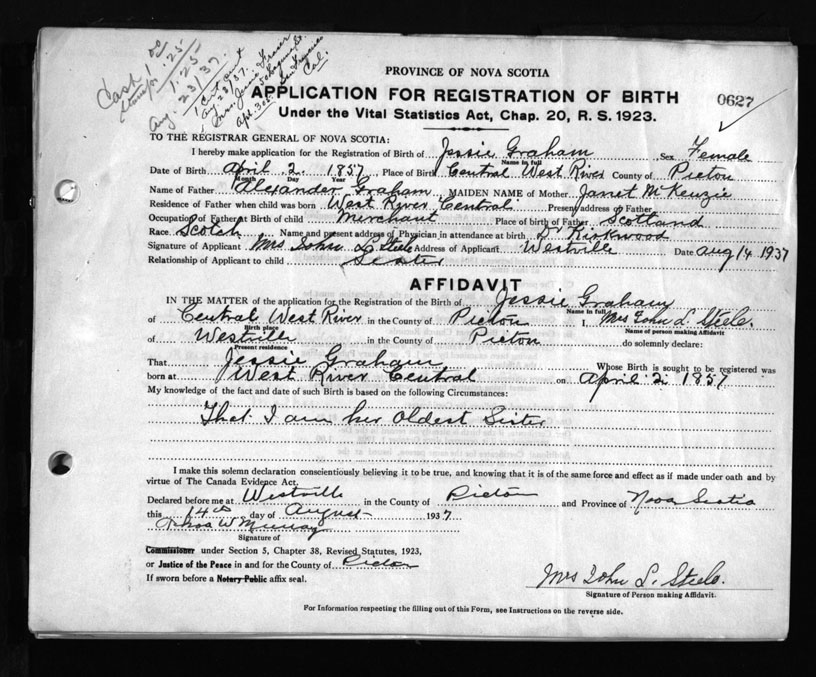 Cash 1.00
stamps .25
1.25
Aug. 23/37.
1 Cert. sent
Aug 23/37.
Mrs. Jessie Fraser
Apt. 305
San Francisco
Cal.
PROVINCE OF NOVA SCOTIA
APPLICATION FOR REGISTRATION OF BIRTH
0627
Under the Vital Statistics Act, Chap. 20, R. S. 1923.
TO THE REGISTRAR GENERAL OF NOVA SCOTIA:
I hereby make application for the Registration of Birth of Jessie Graham Sex Female
Name in full
Date of Birth April 2 1857 Place of Birth Central West River County of Pictou
Month Day Year
Name of Father Alexander Graham MAIDEN NAME of Mother Janet McKenzie
Residence of Father when child was born West River Central Present address of Father
Occupation of Father at Birth of child Merchant Place of birth of Father Scotland
Race Scotch Name and present address of Physician in attendance at birth Dr Kirkwood
Signature of Applicant Mrs John L Steele Address of Applicant Westville Date Aug 14 1937
Relationship of Applicant to child Sister
AFFIDAVIT
IN THE MATTER of the application for the Registration of the Birth of Jessie Graham
Name in full
of Central West River in the County of Pictou I, Mrs John L. Steele.
Birth place Name of person making Affidavit
of Westville in the County of Pictou do solemnly declare:
Present residence
That Jessie Graham Whose Birth is sought to be registered was
born at West River Central on April 2 1857
My knowledge of the fact and date of such Birth is based on the following Circumstances:
That I am her oldest Sister
I make this solemn declaration conscientiously believing it to be true, and knowing that it is of the same force and effect as if made under oath and by
virtue of The Canada Evidence Act.
Declared before me at Westville in the County of Pictou and Province of Nova Scotia
this 14th day of August 1937
W Murray
Signature of
Commissioner under Section 5, Chapter 38, Revised Statutes, 1923,
or Justice of the Peace in and for the County of Pictou
If sworn before a Notary Public affix seal.
Mrs John L. Steele.
Signature of Person making Affidavit.
For Information respecting the filling out of this Form, see Instructions on the reverse side.